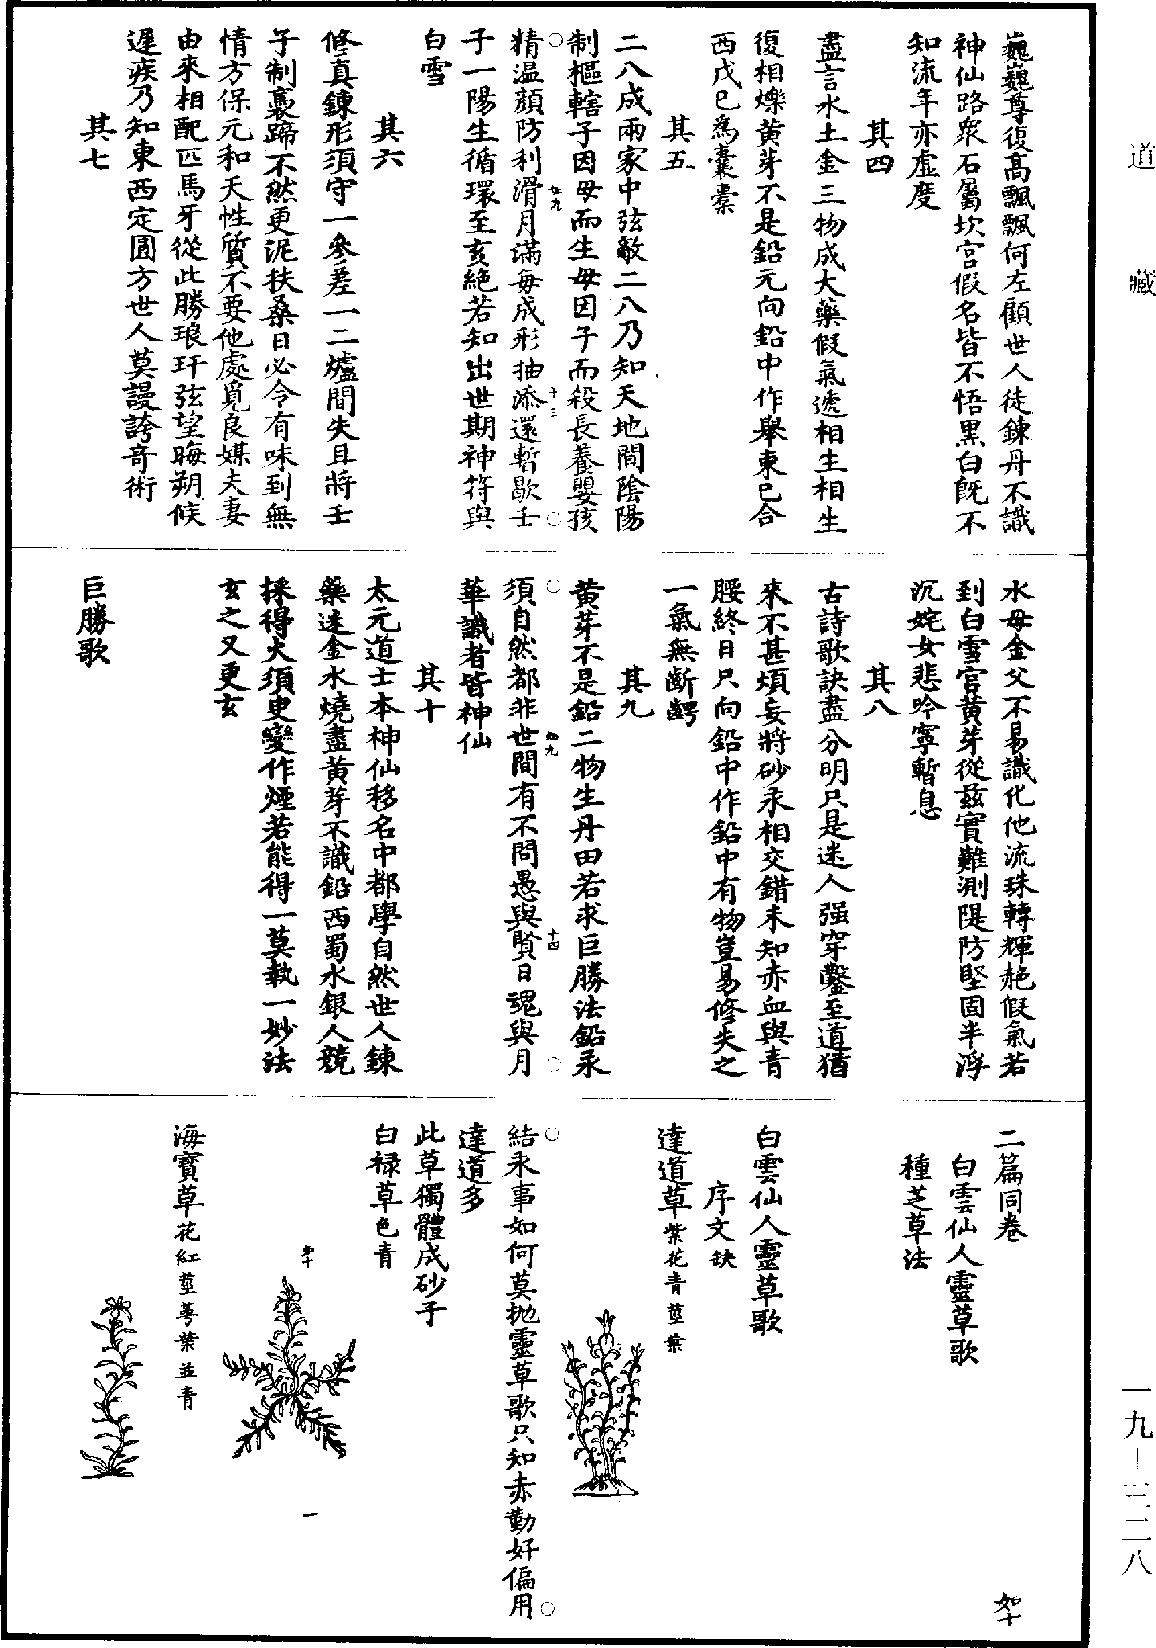 道藏
巍巍尊復高飄飄何左顧世人徒鍊丹不識
神仙路衆石屬坎宮假名皆不悟黑白既不
知流年亦虛度
其四
盡言水土金三物成大藥假氣遞相生相生
復相爍黃芽不是鉛元向鉛中作舉東已合
西戊巳為囊橐
其五
二八成兩家中弦敵二八乃知天地間陰陽
制樞轄子因母而生母因子而殺長養嬰孩
精温顏防利滑月滿每成形抽添還暫歇壬
子一陽生循環至亥絕若知出世期神符與
白雪
其六
修真鍊形須守一參差一二爐間失且將壬
子制裹蹄不然更泥扶桑日必令有味到無
情方保元和天性質不要他處覓良媒夫妻
由來相配匹馬牙從此勝琅玕弦望晦朔候
遲疾乃知東西定圓方世人莫謾誇奇術
其七
水母金父不易識化他流珠轉輝赩假氣若
到白雪宮黃芽從茲實難測隄防堅固半浮
沉姹女悲吟寧暫息
其八
古詩歌訣盡分明只是迷人强穿鑿至道猶
來不甚煩妄將砂汞相交錯未知赤血與青
腰終日只向鉛中作鉛中有物豈易修失之
一氣無斷齶
其九
黃芽不是鉛二物生丹田若求巨勝法鉛汞
須自然都非世間有不問愚與賢日魂與月
華識者皆神仙
其十
太元道士本神仙移名中都學自然世人鍊
藥迷金水燒盡黃芽不識鉛西蜀水銀人競
採得火須臾變作煙若能得一莫執一妙法
玄之又更玄
巨勝歌
二篇同卷
如十
白雲仙人靈草歌
種芝草法
白雲仙人靈草歌
序文缺
達道草紫花青莖葉
結汞事如何莫抛靈草歌只知赤勤好偏用
達道多
此草獨體成砂子
白禄草色青
海寶草花紅莖萼葉並青
十三
十四
一
一九—三二八